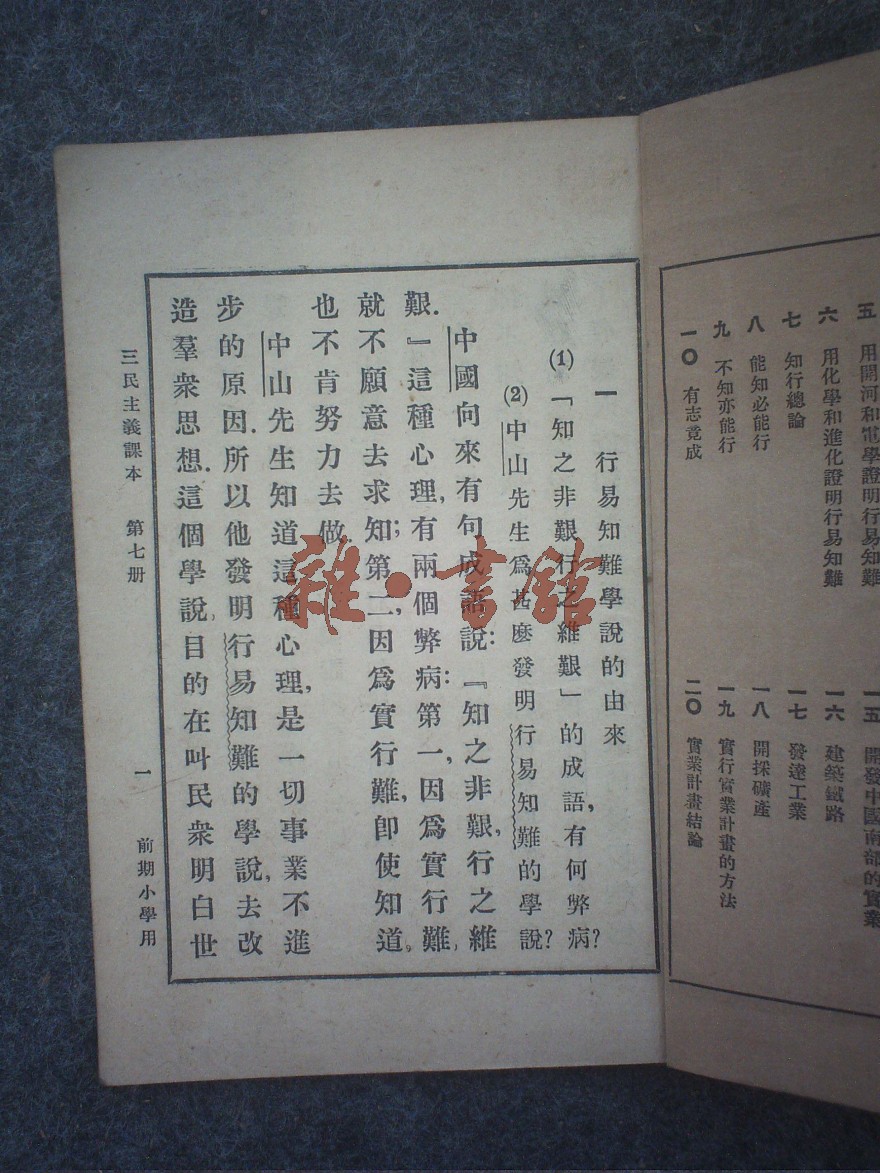 五 用開河和電學證明行易知難
六 用化學和進化證明行易知難
七 知行總論
八 能知必能行
九 不知亦能行
一〇 有志竟成
一五 開發中國南部的實業
一六 建築鐵路
一七 發達工業
一八 開採礦產
一九 實行實業計畫的方法
二〇 實業計畫結論
一 行易知難學說的由來
(1)「知之非艱行之維艱」的成語,有何弊病?
(2)中山先生爲甚麼發明行易知難的學說?
中國向來有句成語說:『知之非艱,行之維
艱.』這種心理,有兩個弊病:第一,因爲實行難,
就不願意去求知;第二,因爲實行難,卽使知道,
也不肯努力去做.
中山先生知道這種心理,是一切事業不進
步的原因.所以他發明行易知難的學說,去改
造羣衆思想.這個學說,目的在叫民衆明白世
三民主義課本 第七册 一 前期小學用
雜·書館